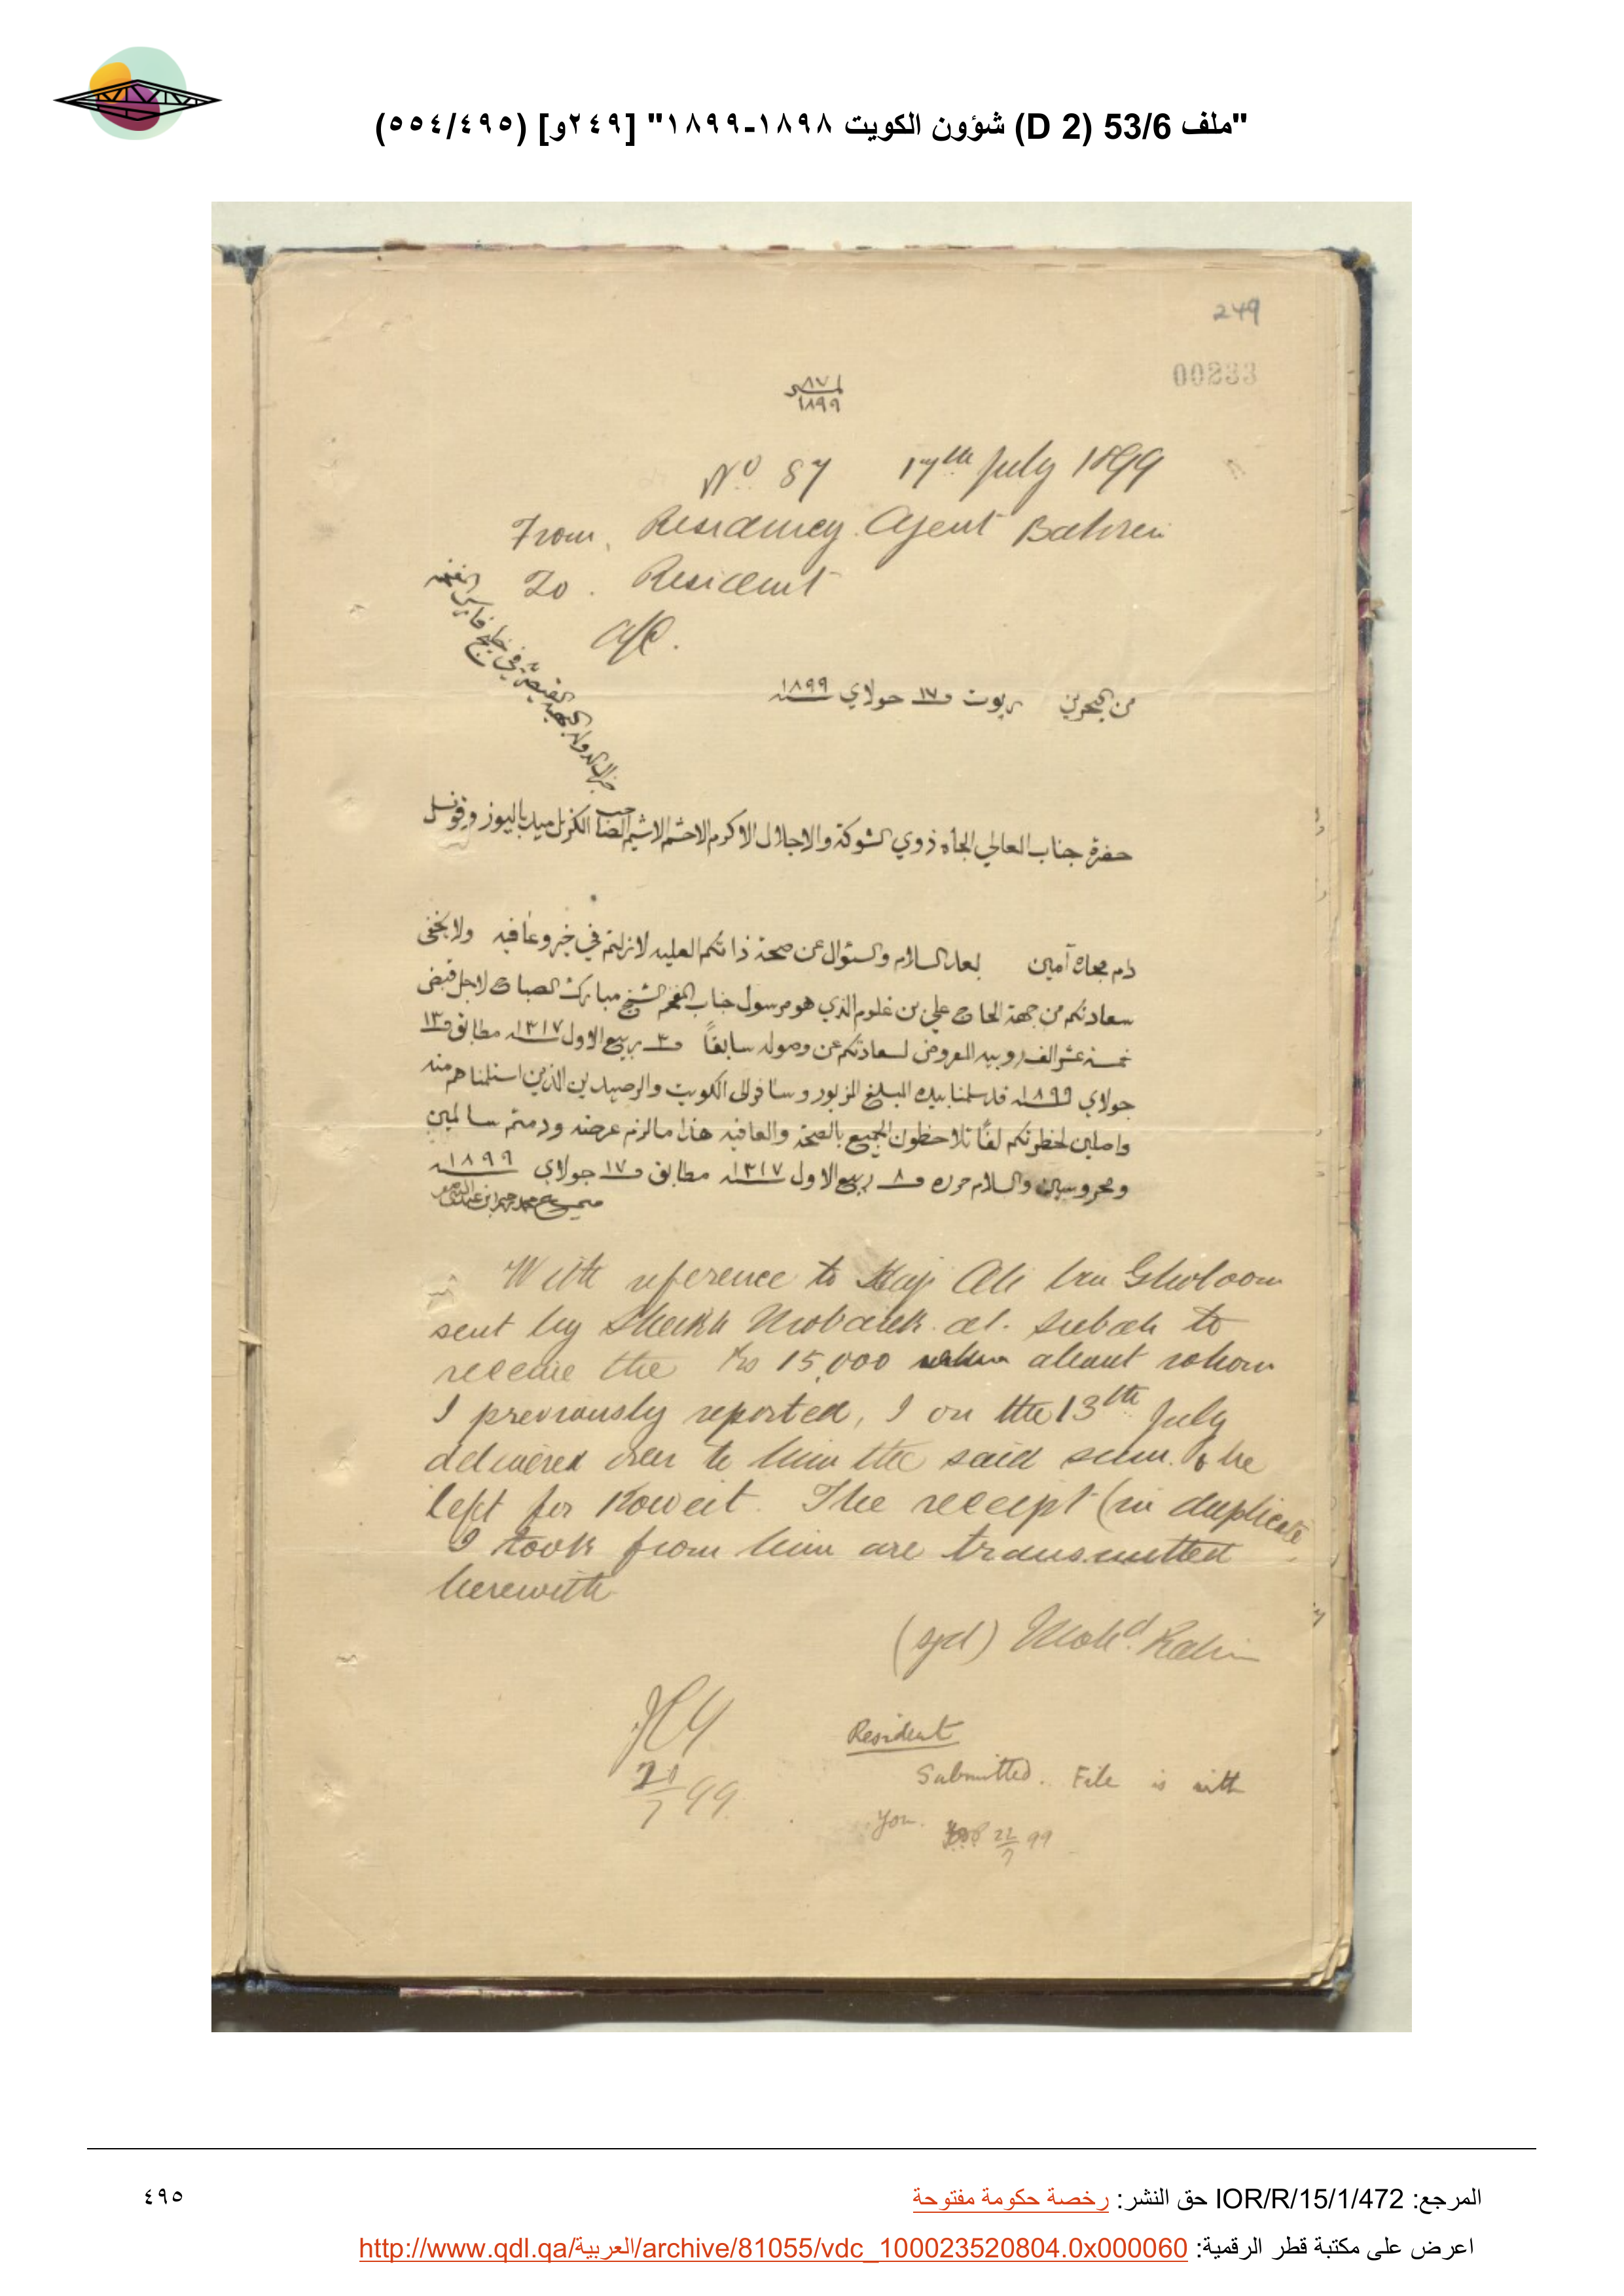 "ملف 53/6 (D 2) شؤون الكويت ١٨٩٨-١٨٩٩" [٢٤٩و] (٥٥٤/٤٩٥)
249
00233
نمر ٨٧
١٨٩٩
No. 87 17th July 1899
From, Residency Agent Bahrein
To. Resident
A/C.
من البحرين ربوت في ١٧ جولاي سنة ١٨٩٩
حضرة جناب العالي الجاه ذوي الشوكة والاجلال الاكرم الاحشم الاشيم الصاحب الكرنل ميد باليوز وقونسل
جنرال الدولة البهية القيصرية في خليج فارس
دام مجاه آمين بعد السلام والسؤال عن صحة ذاتكم العليه لازلتم في خير وعافيه ولا يخفى
سعادتكم من جهة الحاج علي بن غلوم الذي هو مرسول جناب المفخم الشيخ مبارك الصباح لاجل قبض
خمسة عشر الف روبيه المعروض لسعادتكم عن وصوله سابقاً في ٣ ربيع الاول سنة ١٣١٧ مطابق في ١٣
جولاي سنة ١٨٩٩ قد سلمنا بيده المبلغ المزبور وسافر الى الكويت والرصيدين الذين استلمناهم منه
واصلين لحظرتكم لفًا تلاحظون الجميع بالصحة والعافيه هذا ما لزم عرضه ودمتم سالمين
ومحروسين والسلام حرره في ٨ ربيع الاول سنة ١٣١٧ مطابق في ١٧ جولاي سنة ١٨٩٩
صحيح محمد رحيم ابن عبدالنبي صفر
With reference to Haji Ali bin Gholoom
sent by Sheikh Mobarek al. Subah to
receive the Rs 15,000 about whom
I previously reported, I on the 13th July
delivered over to him the said sum. & he
left for Koweit. The receipt (in duplicate
I took from him are transmitted
herewith
(sgd) Mohd. Rahim
20/7 99
Resident
Submitted. File is with
you. 22/7 99
المرجع: IOR/R/15/1/472 حق النشر: رخصة حكومة مفتوحة
٤٩٥
اعرض على مكتبة قطر الرقمية: http://www.qdl.qa/العربية/archive/81055/vdc_100023520804.0x000060